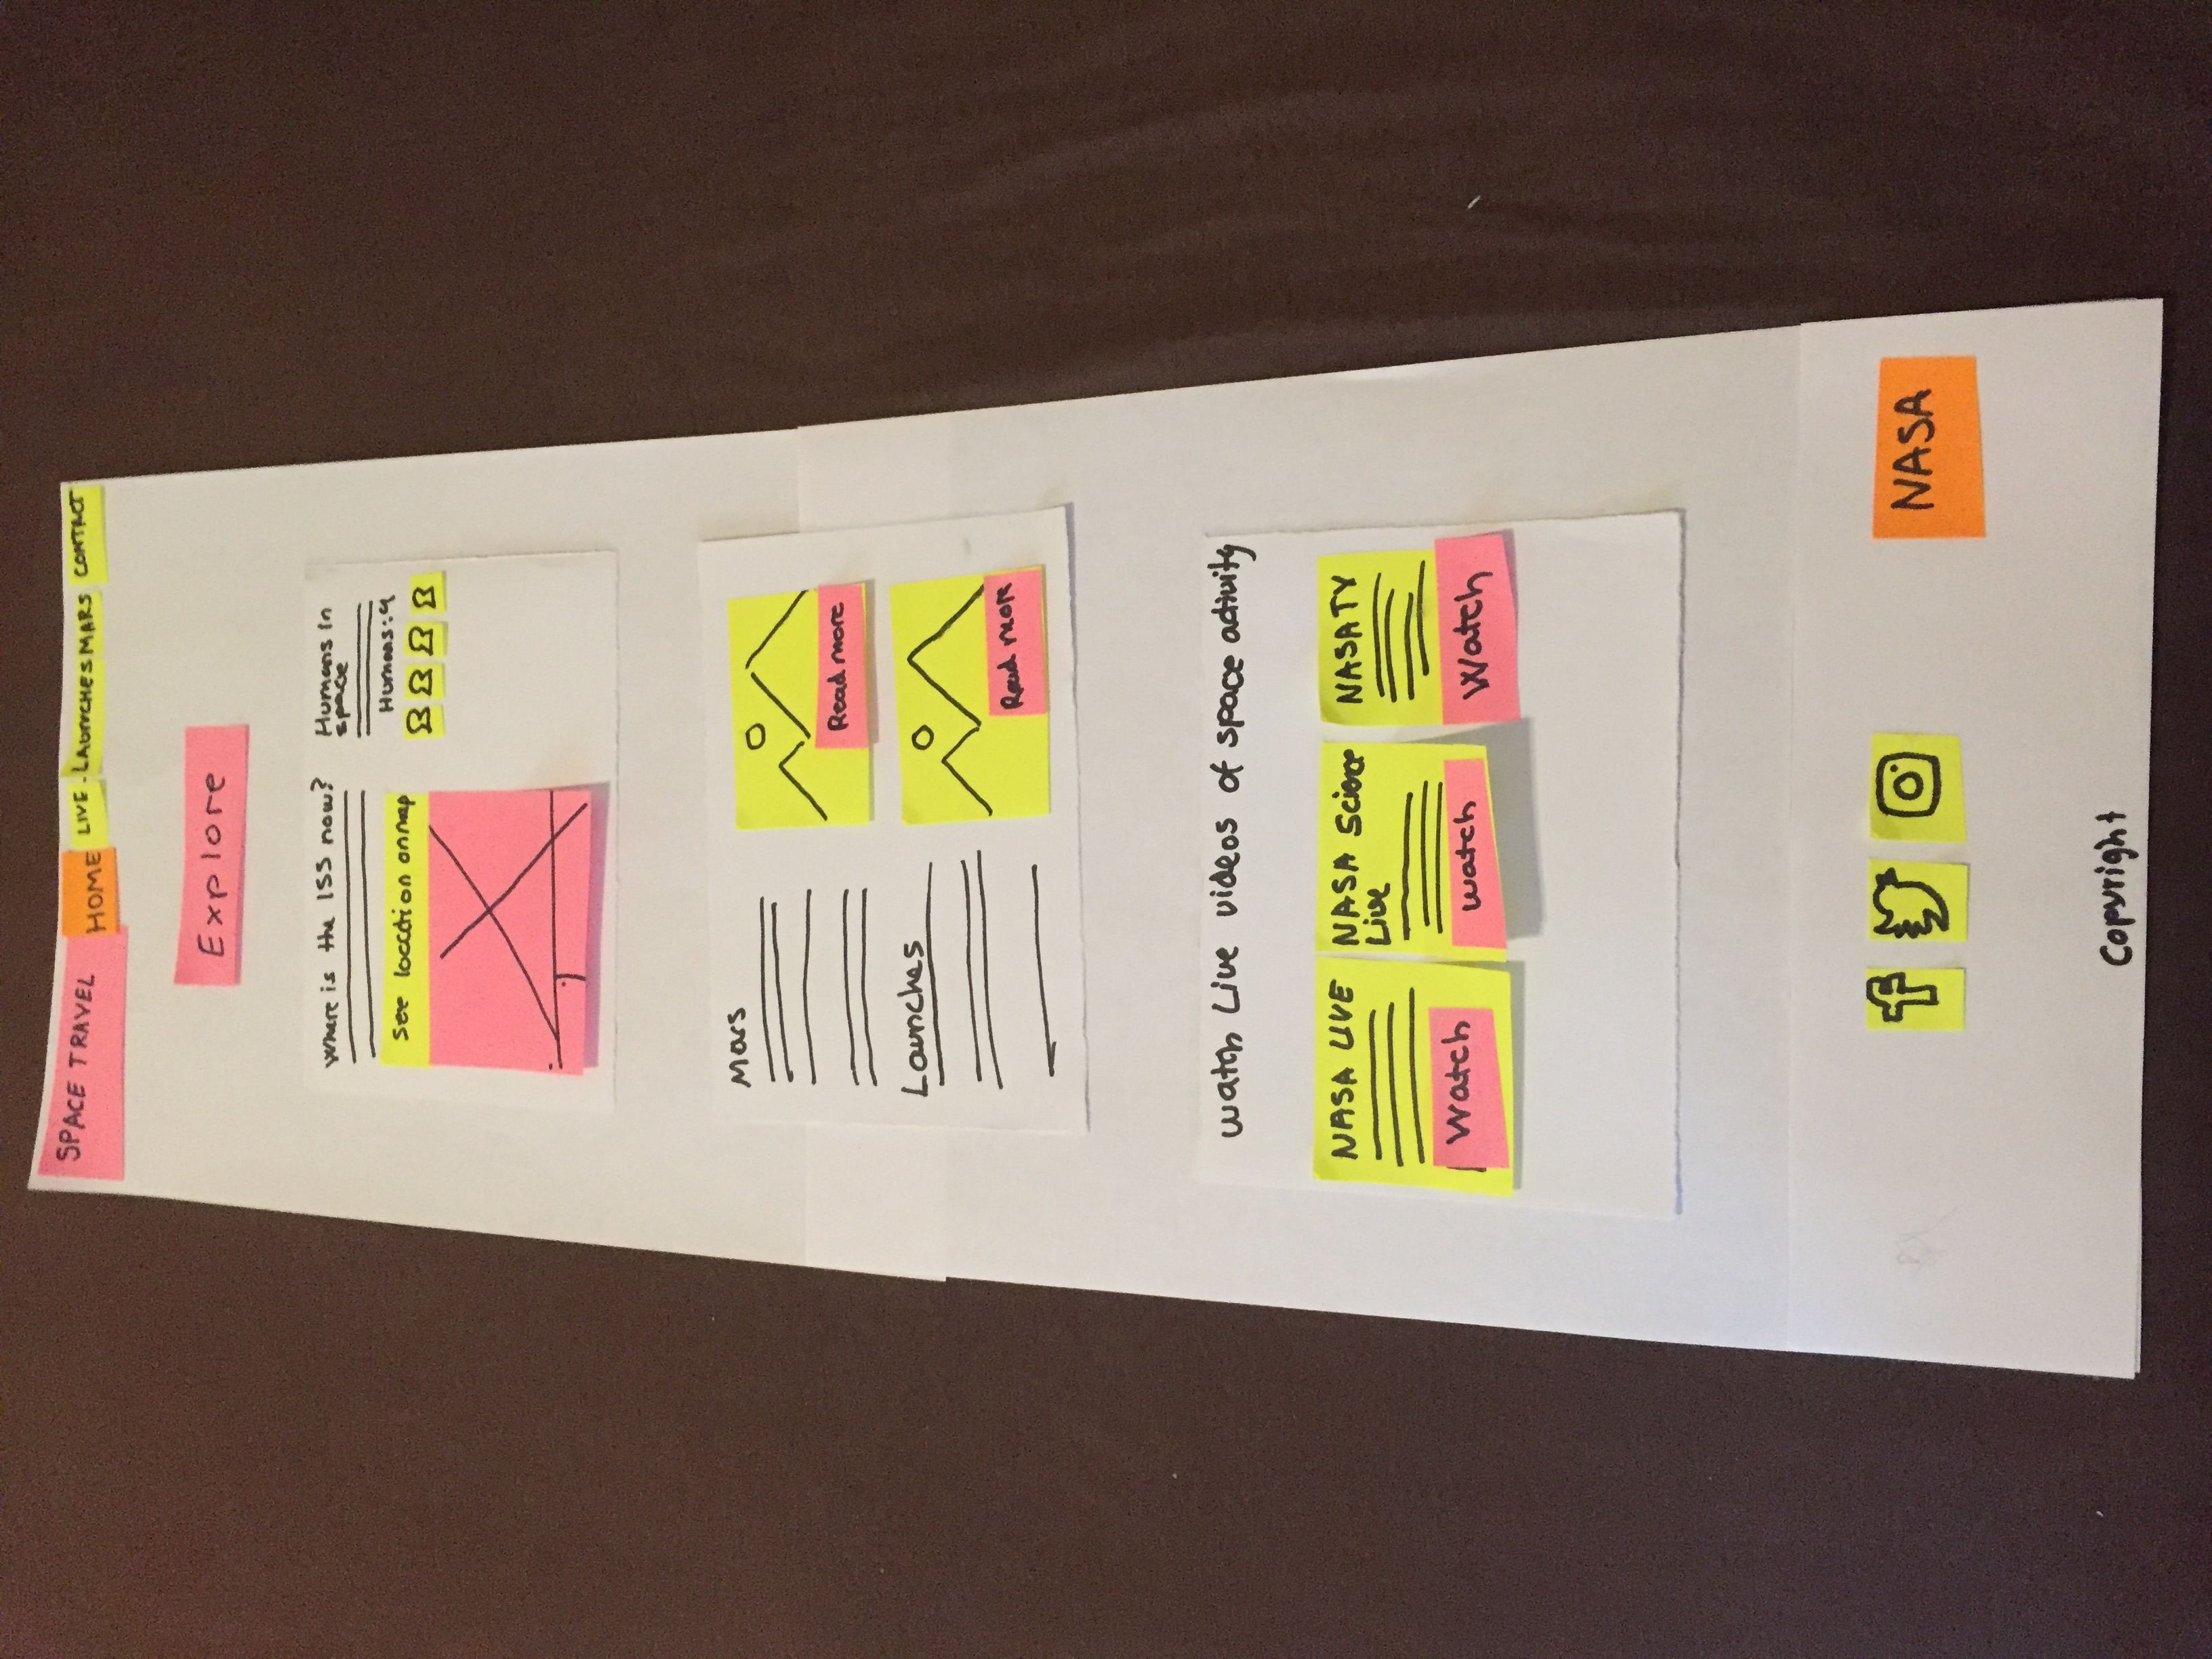 SPACE TRAVEL HOME LIVE LAUNCHES MARS CONTACT
Explore
Where is the ISS now?
See location on map
Humans in
space
Humans: 4
Mars
Read more
Launches
Read more
Watch Live videos of space activity
NASA LIVE
Watch
NASA Science
Live
watch
NASA TV
Watch
NASA
Copyright